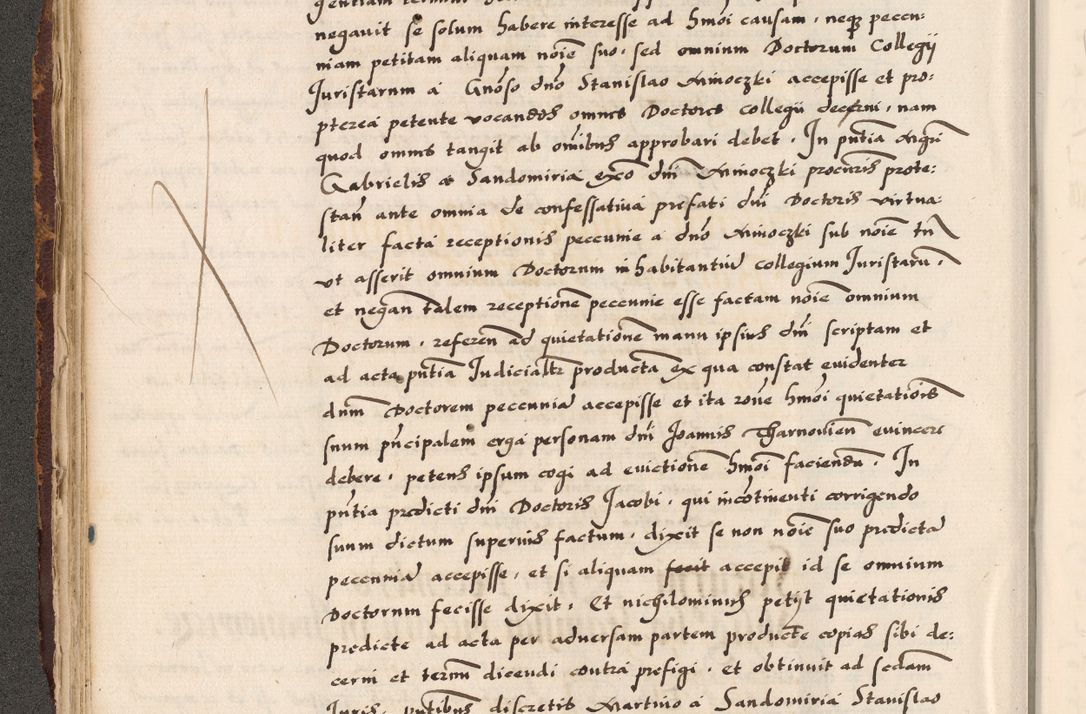 negavit se solum habere interesse ad hmoi causam, neqz pecun:
niam petitam aliquam noie suo, sed omnium Doctorum Collegij
Juristarum a Gnoso dno Stanislao Minoczki accepisse et pro:
pterea petente vocandos omnes Doctores collegii decerni, nam
quod omnes tangit ab omibus approbari debet. In pntia Mgri
Gabrielis a Sandomiria exo dni Minoczki procuris prote:
stan ante omnia de confessativa prefati dni Doctoris virtua:
liter facta receptionis peccunie a dno Minoczki sub noie tn
ut asserit omnium Doctorum inhabitantium collegium Juristaru,
et negan talem receptione peccunie esse factam noie omnium
Doctorum, referen ad quietatione manu ipsius dni scriptam et
ad acta pntia Judicialr producta ex qua constat evidenter
dnum Doctorem peccunia accepisse et ita rone hmoi quietationis
suum pncipalem erga personam dni Joannis Tharnovien evincere
debere, petens ipsum cogi ad evictione hmoi faciendu. In
pntia predicti dni Doctoris Jacobi, qui incotinenti corrigendo
suum dictum superius factum, dixit se non noie suo predicta
peccunia accepisse, et si aliquam fecit accepit id se omnium
Doctorum fecisse dixit. Et nichilominus petijt quietationis
predicte ad acta per adversam partem producte copias sibi de:
cerni et termi dicendi contra prefigi, et obtinuit ad sedam
Juris, pntibus discretis Martino a Sandomiria Stanislao